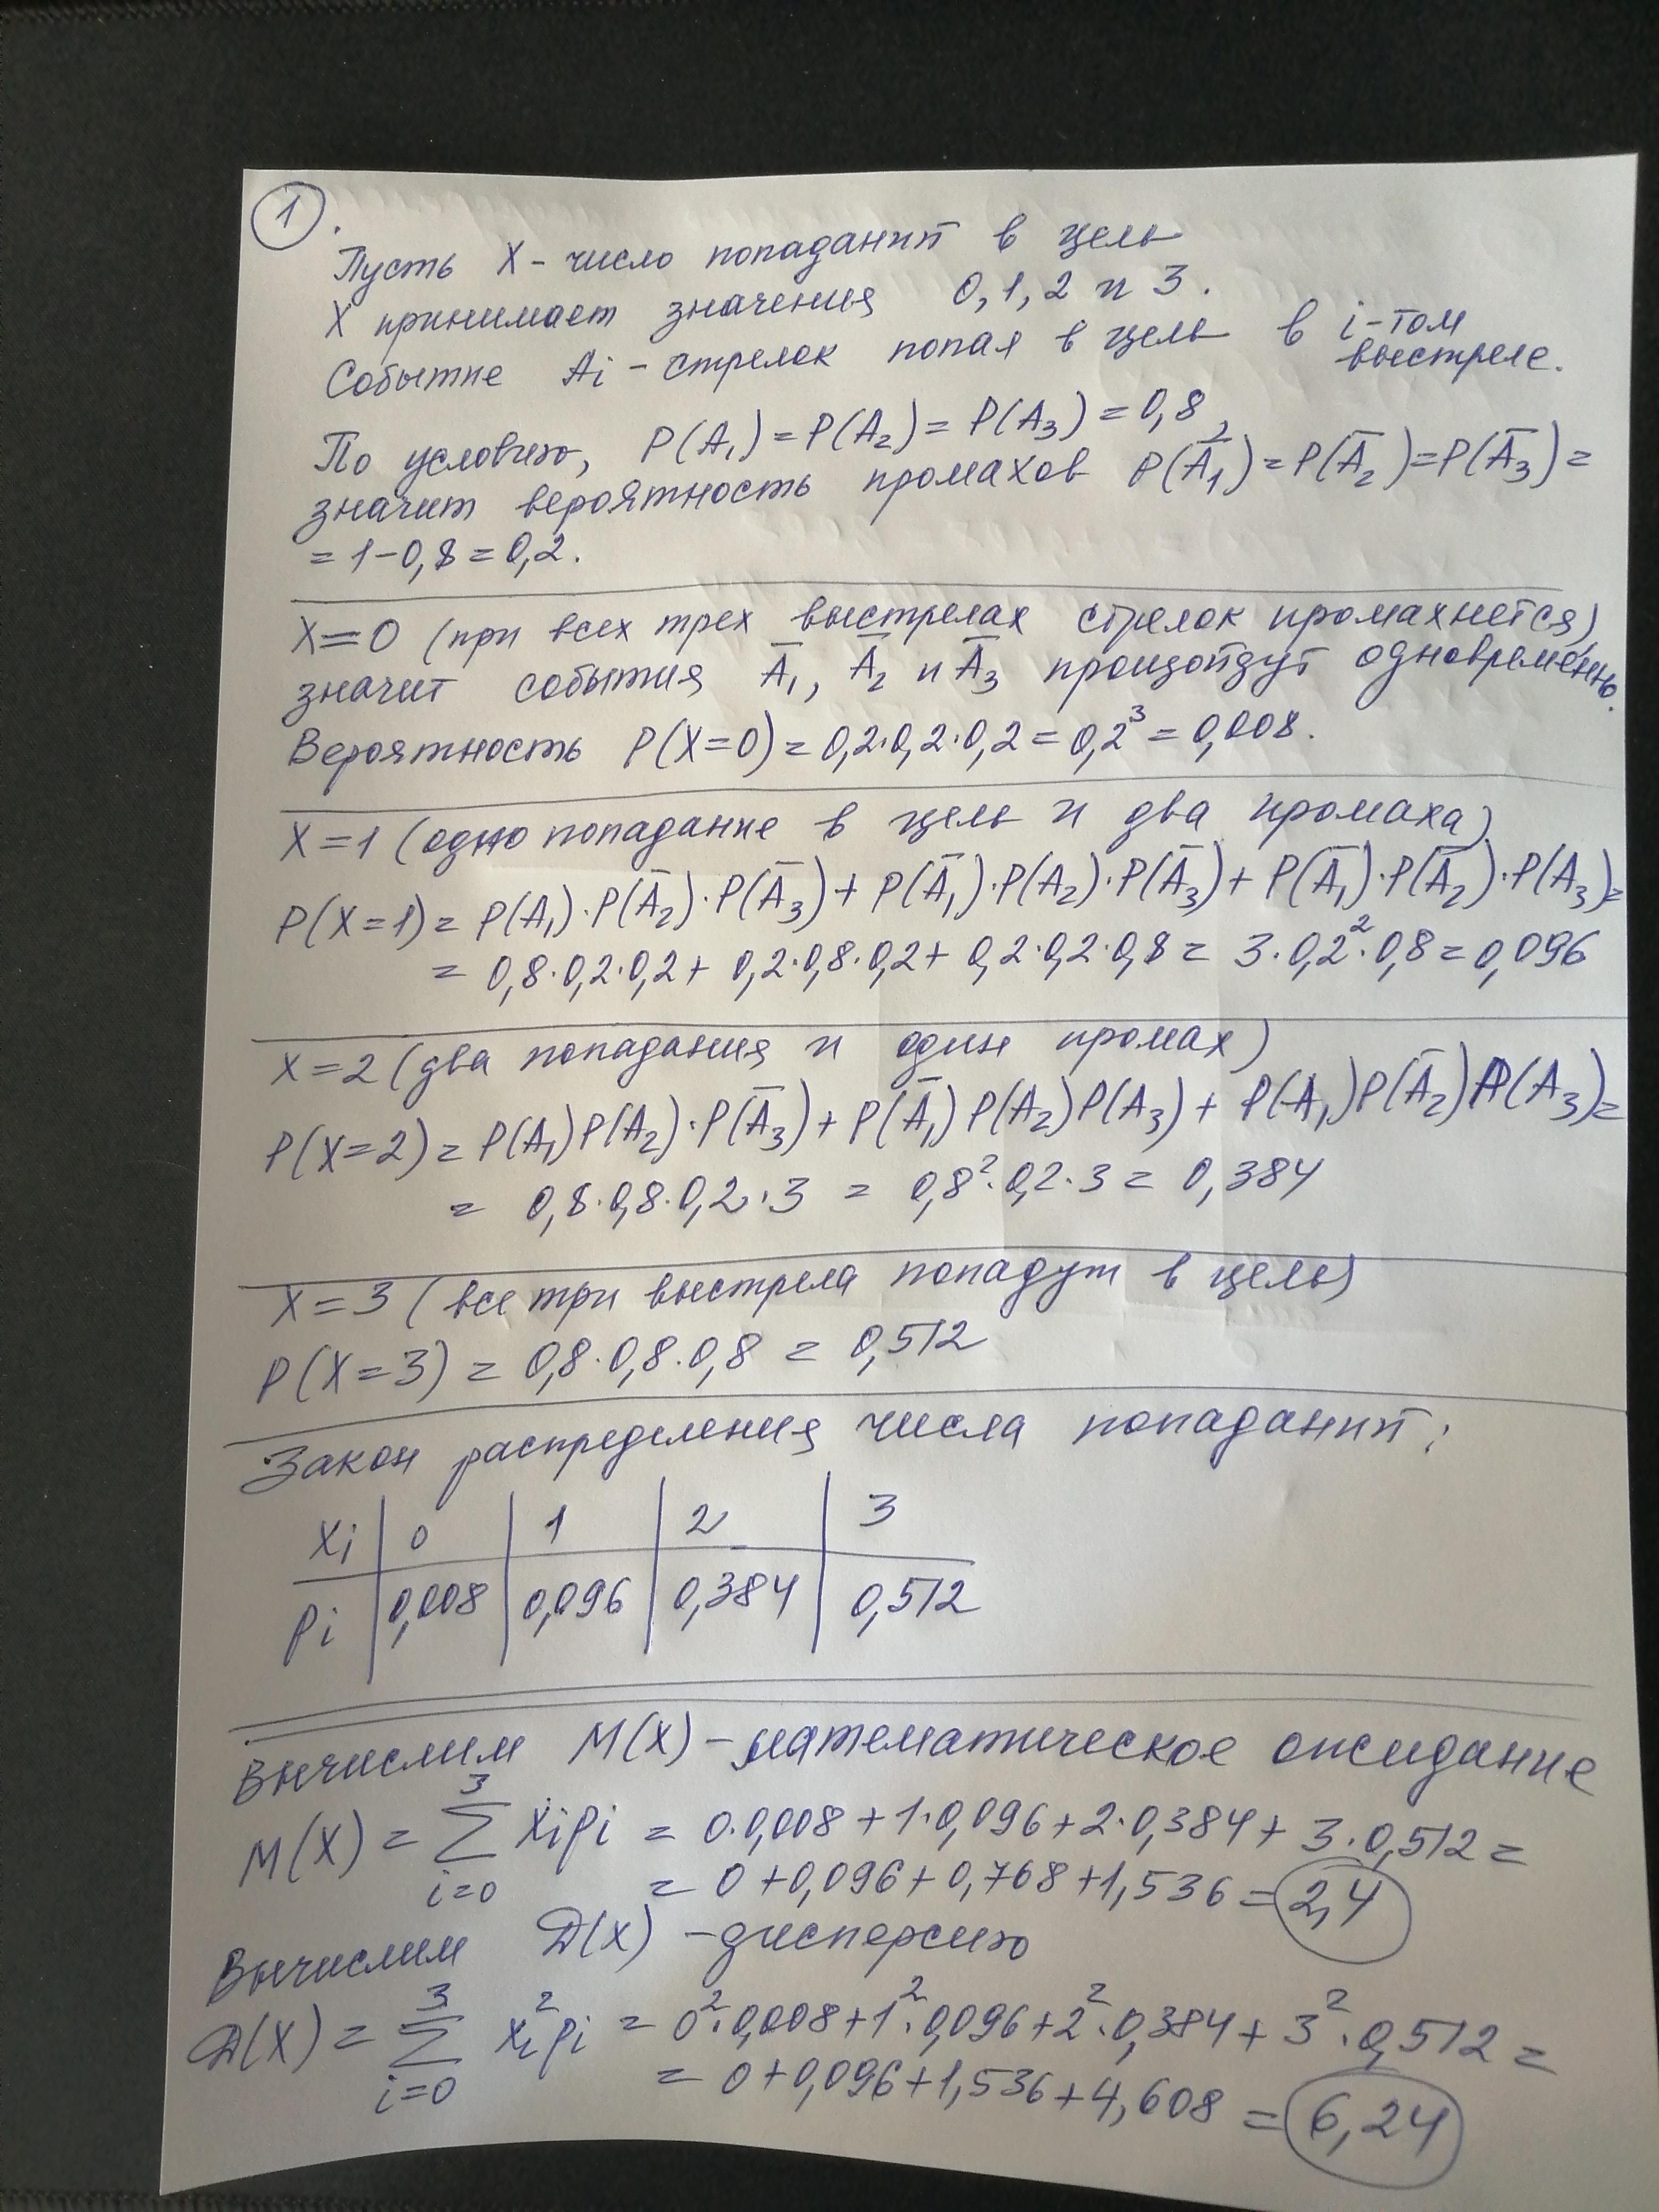 1.
Пусть X - число попаданий в цель
X принимает значения 0, 1, 2 и 3.
Событие Ai - стрелок попал в цель в i-том выстреле.
По условию, P(A₁) = P(A₂) = P(A₃) = 0,8,
значит вероятность промахов P(A̅₁) = P(A̅₂) = P(A̅₃) =
= 1 - 0,8 = 0,2.
X = 0 (при всех трех выстрелах стрелок промахнется),
значит события A̅₁, A̅₂ и A̅₃ произойдут одновременно.
Вероятность P(X=0) = 0,2·0,2·0,2 = 0,2³ = 0,008.
X = 1 (одно попадание в цель и два промаха)
P(X=1) = P(A₁)·P(A̅₂)·P(A̅₃) + P(A̅₁)·P(A₂)·P(A̅₃) + P(A̅₁)·P(A̅₂)·P(A₃) =
= 0,8·0,2·0,2 + 0,2·0,8·0,2 + 0,2·0,2·0,8 = 3·0,2²·0,8 = 0,096
X = 2 (два попадания и один промах)
P(X=2) = P(A₁)P(A₂)·P(A̅₃) + P(A̅₁)P(A₂)P(A₃) + P(A₁)P(A̅₂)P(A₃) =
= 0,8·0,8·0,2·3 = 0,8²·0,2·3 = 0,384
X = 3 (все три выстрела попадут в цель)
P(X=3) = 0,8·0,8·0,8 = 0,512
Закон распределения числа попаданий:
Xi | 0 | 1 | 2 | 3
Pi | 0,008 | 0,096 | 0,384 | 0,512
Вычислим M(X) - математическое ожидание
M(X) = ∑ᵢ₌₀³ xᵢpᵢ = 0·0,008 + 1·0,096 + 2·0,384 + 3·0,512 =
= 0 + 0,096 + 0,768 + 1,536 = 2,4
Вычислим D(X) - дисперсию
D(X) = ∑ᵢ₌₀³ xᵢ²pᵢ = 0²·0,008 + 1²·0,096 + 2²·0,384 + 3²·0,512 =
= 0 + 0,096 + 1,536 + 4,608 = 6,24